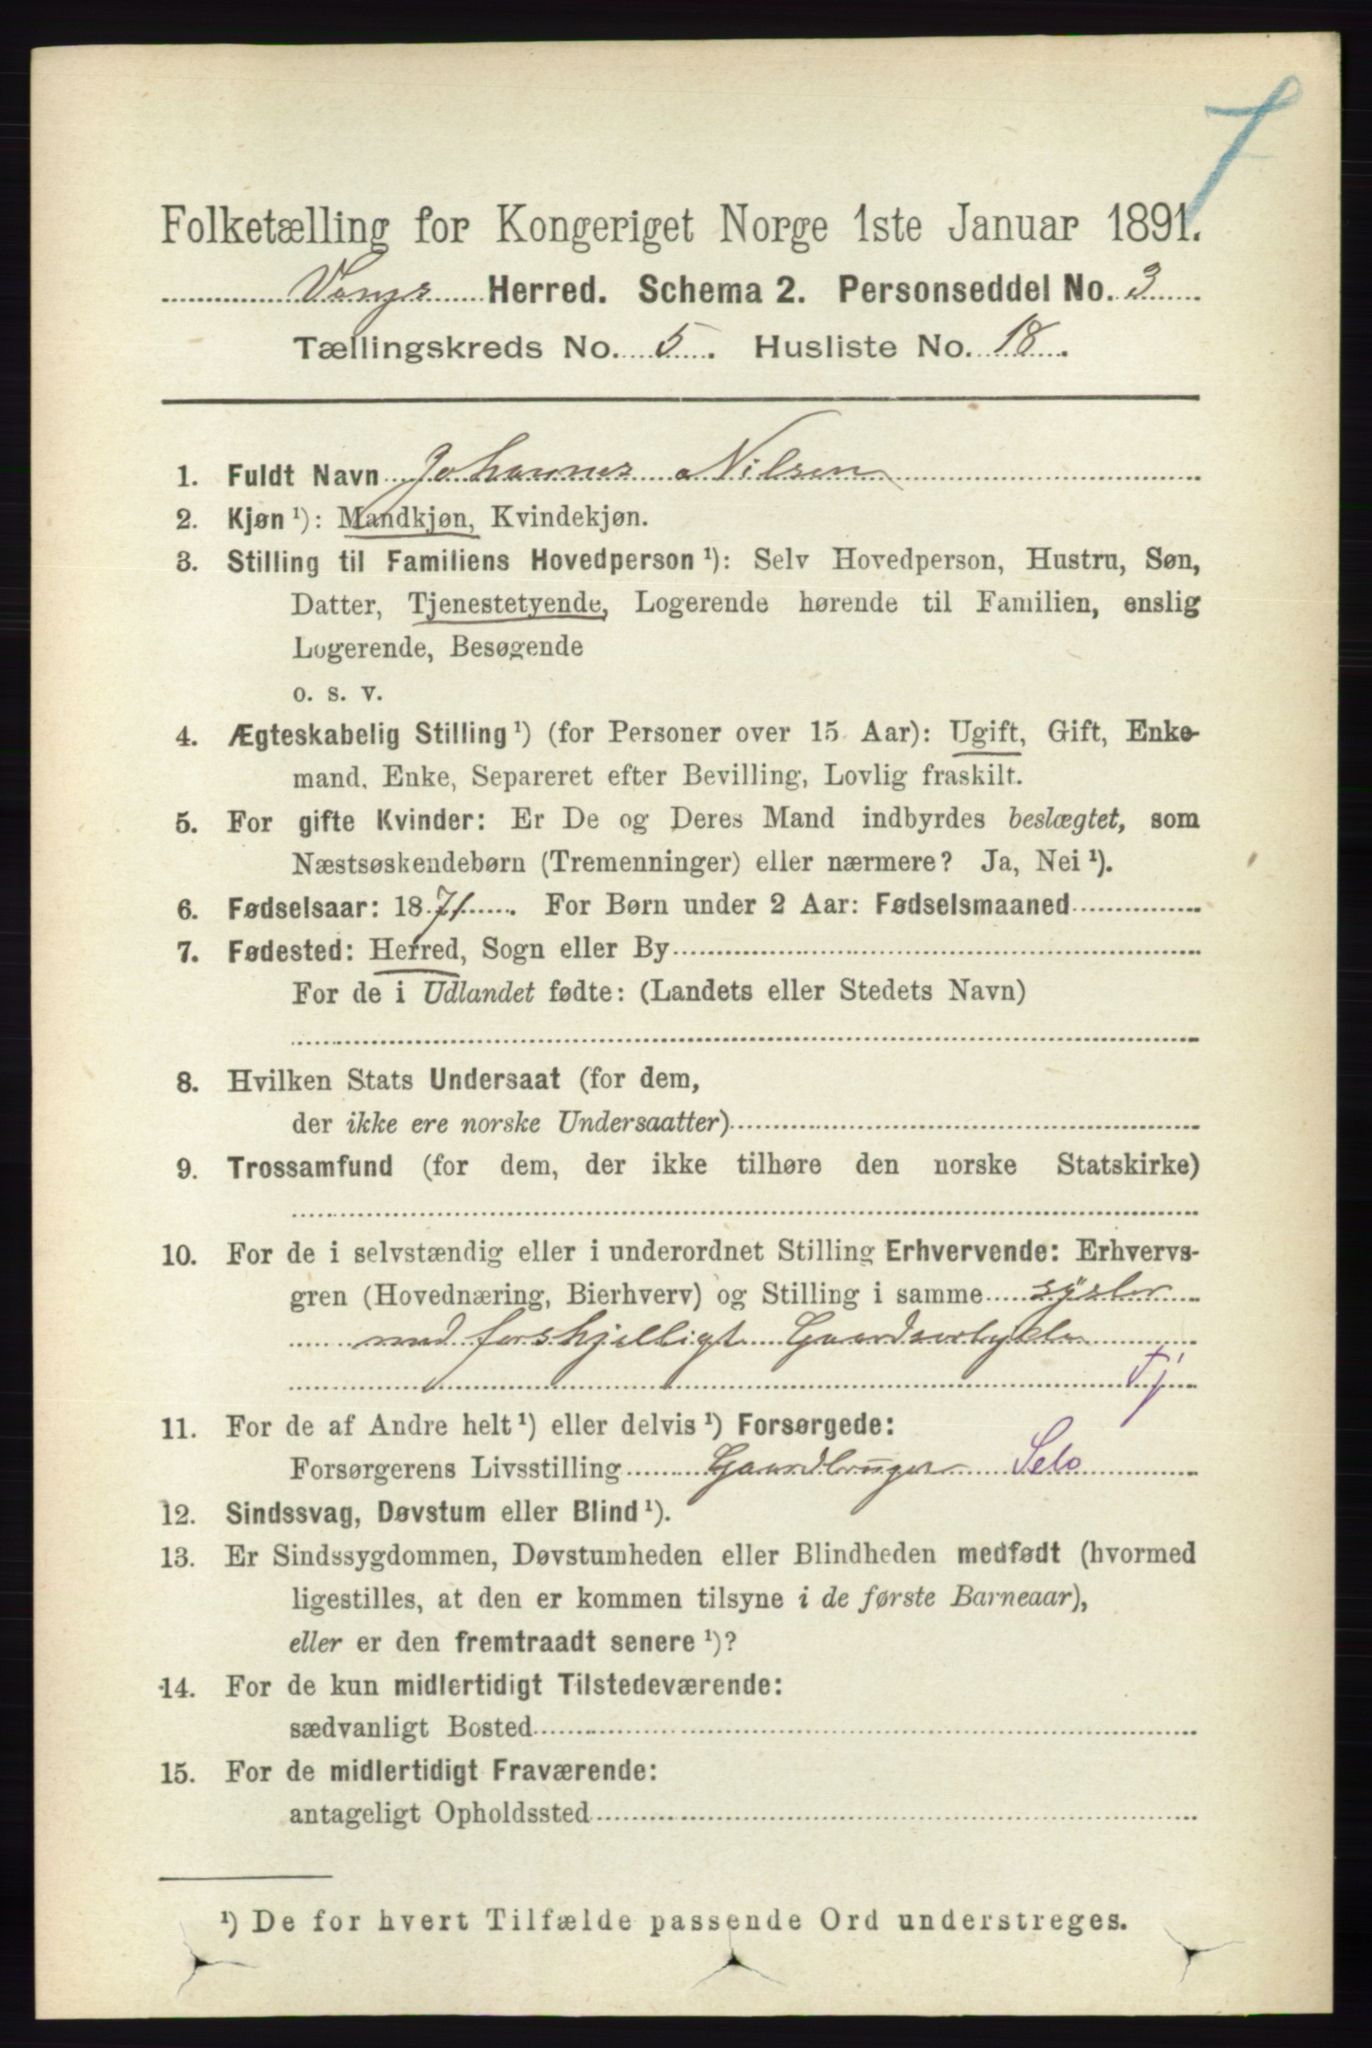 Folketælling for Kongeriget Norge 1ste Januar 1891.
Vangs Herred. Schema 2. Personseddel No. 3
Tællingskreds No. 5. Husliste No. 18.
1. Fuldt Navn Johannes Nilsen
2. Kjøn ¹): Mandkjøn, Kvindekjøn.
3. Stilling til Familiens Hovedperson ¹): Selv Hovedperson, Hustru, Søn,
Datter, Tjenestetyende, Logerende hørende til Familien, enslig
Logerende, Besøgende
o. s. v.
4. Ægteskabelig Stilling ¹) (for Personer over 15 Aar): Ugift, Gift, Enke-
mand, Enke, Separeret efter Bevilling, Lovlig fraskilt.
5. For gifte Kvinder: Er De og Deres Mand indbyrdes beslægtet, som
Næstsøskendebørn (Tremenninger) eller nærmere? Ja, Nei ¹).
6. Fødselsaar: 1871. For Børn under 2 Aar: Fødselsmaaned
7. Fødested: Herred, Sogn eller By
For de i Udlandet fødte: (Landets eller Stedets Navn)
8. Hvilken Stats Undersaat (for dem,
der ikke ere norske Undersaatter)
9. Trossamfund (for dem, der ikke tilhøre den norske Statskirke)
10. For de i selvstændig eller i underordnet Stilling Erhvervende: Erhvervs-
gren (Hovednæring, Bierhverv) og Stilling i samme sysler
med forskjelligt Gaardsarbeide
Tj
11. For de af Andre helt ¹) eller delvis ¹) Forsørgede:
Forsørgerens Livsstilling Gaardbruger Selo
12. Sindssvag, Døvstum eller Blind ¹).
13. Er Sindssygdommen, Døvstumheden eller Blindheden medfødt (hvormed
ligestilles, at den er kommen tilsyne i de første Barneaar),
eller er den fremtraadt senere ¹)?
14. For de kun midlertidigt Tilstedeværende:
sædvanligt Bosted
15. For de midlertidigt Fraværende:
antageligt Opholdssted
¹) De for hvert Tilfælde passende Ord understreges.